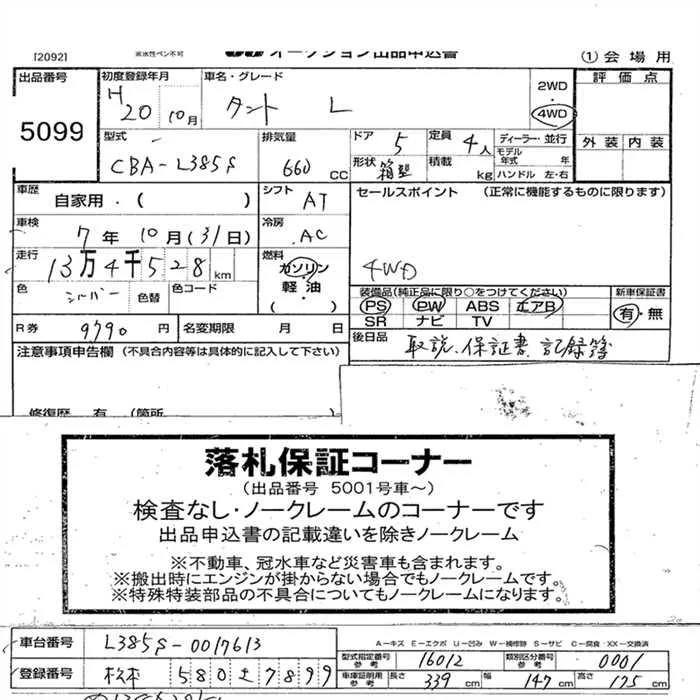 [2092] 油水性ペン不可 オークション出品申込書 ①会場用
出品番号 5099
初度登録年月 H20 10月
車名・グレード タント L
2WD 4WD
評価点
外装 内装
型式 CBA-L385S
排気量 660 CC
ドア 5
形状 箱型
定員 4人
積載 kg
ディーラー・並行
モデル年式 年
ハンドル 左・右
車歴 自家用・( )
シフト AT
セールスポイント (正常に機能するものに限ります)
4WD
車検 7年10月(31日)
冷房 AC
走行 13万4千528km
燃料 ガソリン 軽油・( )
色 シルバー 色替 色コード
装備品(純正品に限り○をつけてください)
PS PW ABS エアB
SR ナビ TV
新車保証書 有・無
R券 9790円 名変期限 月 日
後日品 取説、保証書、記録簿
注意事項申告欄 (不具合内容等は具体的に記入して下さい)
修復歴 有 (箇所
落札保証コーナー
(出品番号 5001号車～)
検査なし・ノークレームのコーナーです
出品申込書の記載違いを除きノークレーム
※不動車、冠水車など災害車も含まれます。
※搬出時にエンジンが掛からない場合でもノークレームです。
※特殊特装部品の不具合についてもノークレームになります。
A-キズ E-エクボ U-凹み W-補修跡 S-サビ C-腐食・XX-交換済
車台番号 L385S-0017613
型式指定番号 参考 16012 類別区分番号 参考 0001
登録番号 松本 580 む 7899
車庫証明用 参考 長さ 339cm 幅 147cm 高さ 175cm